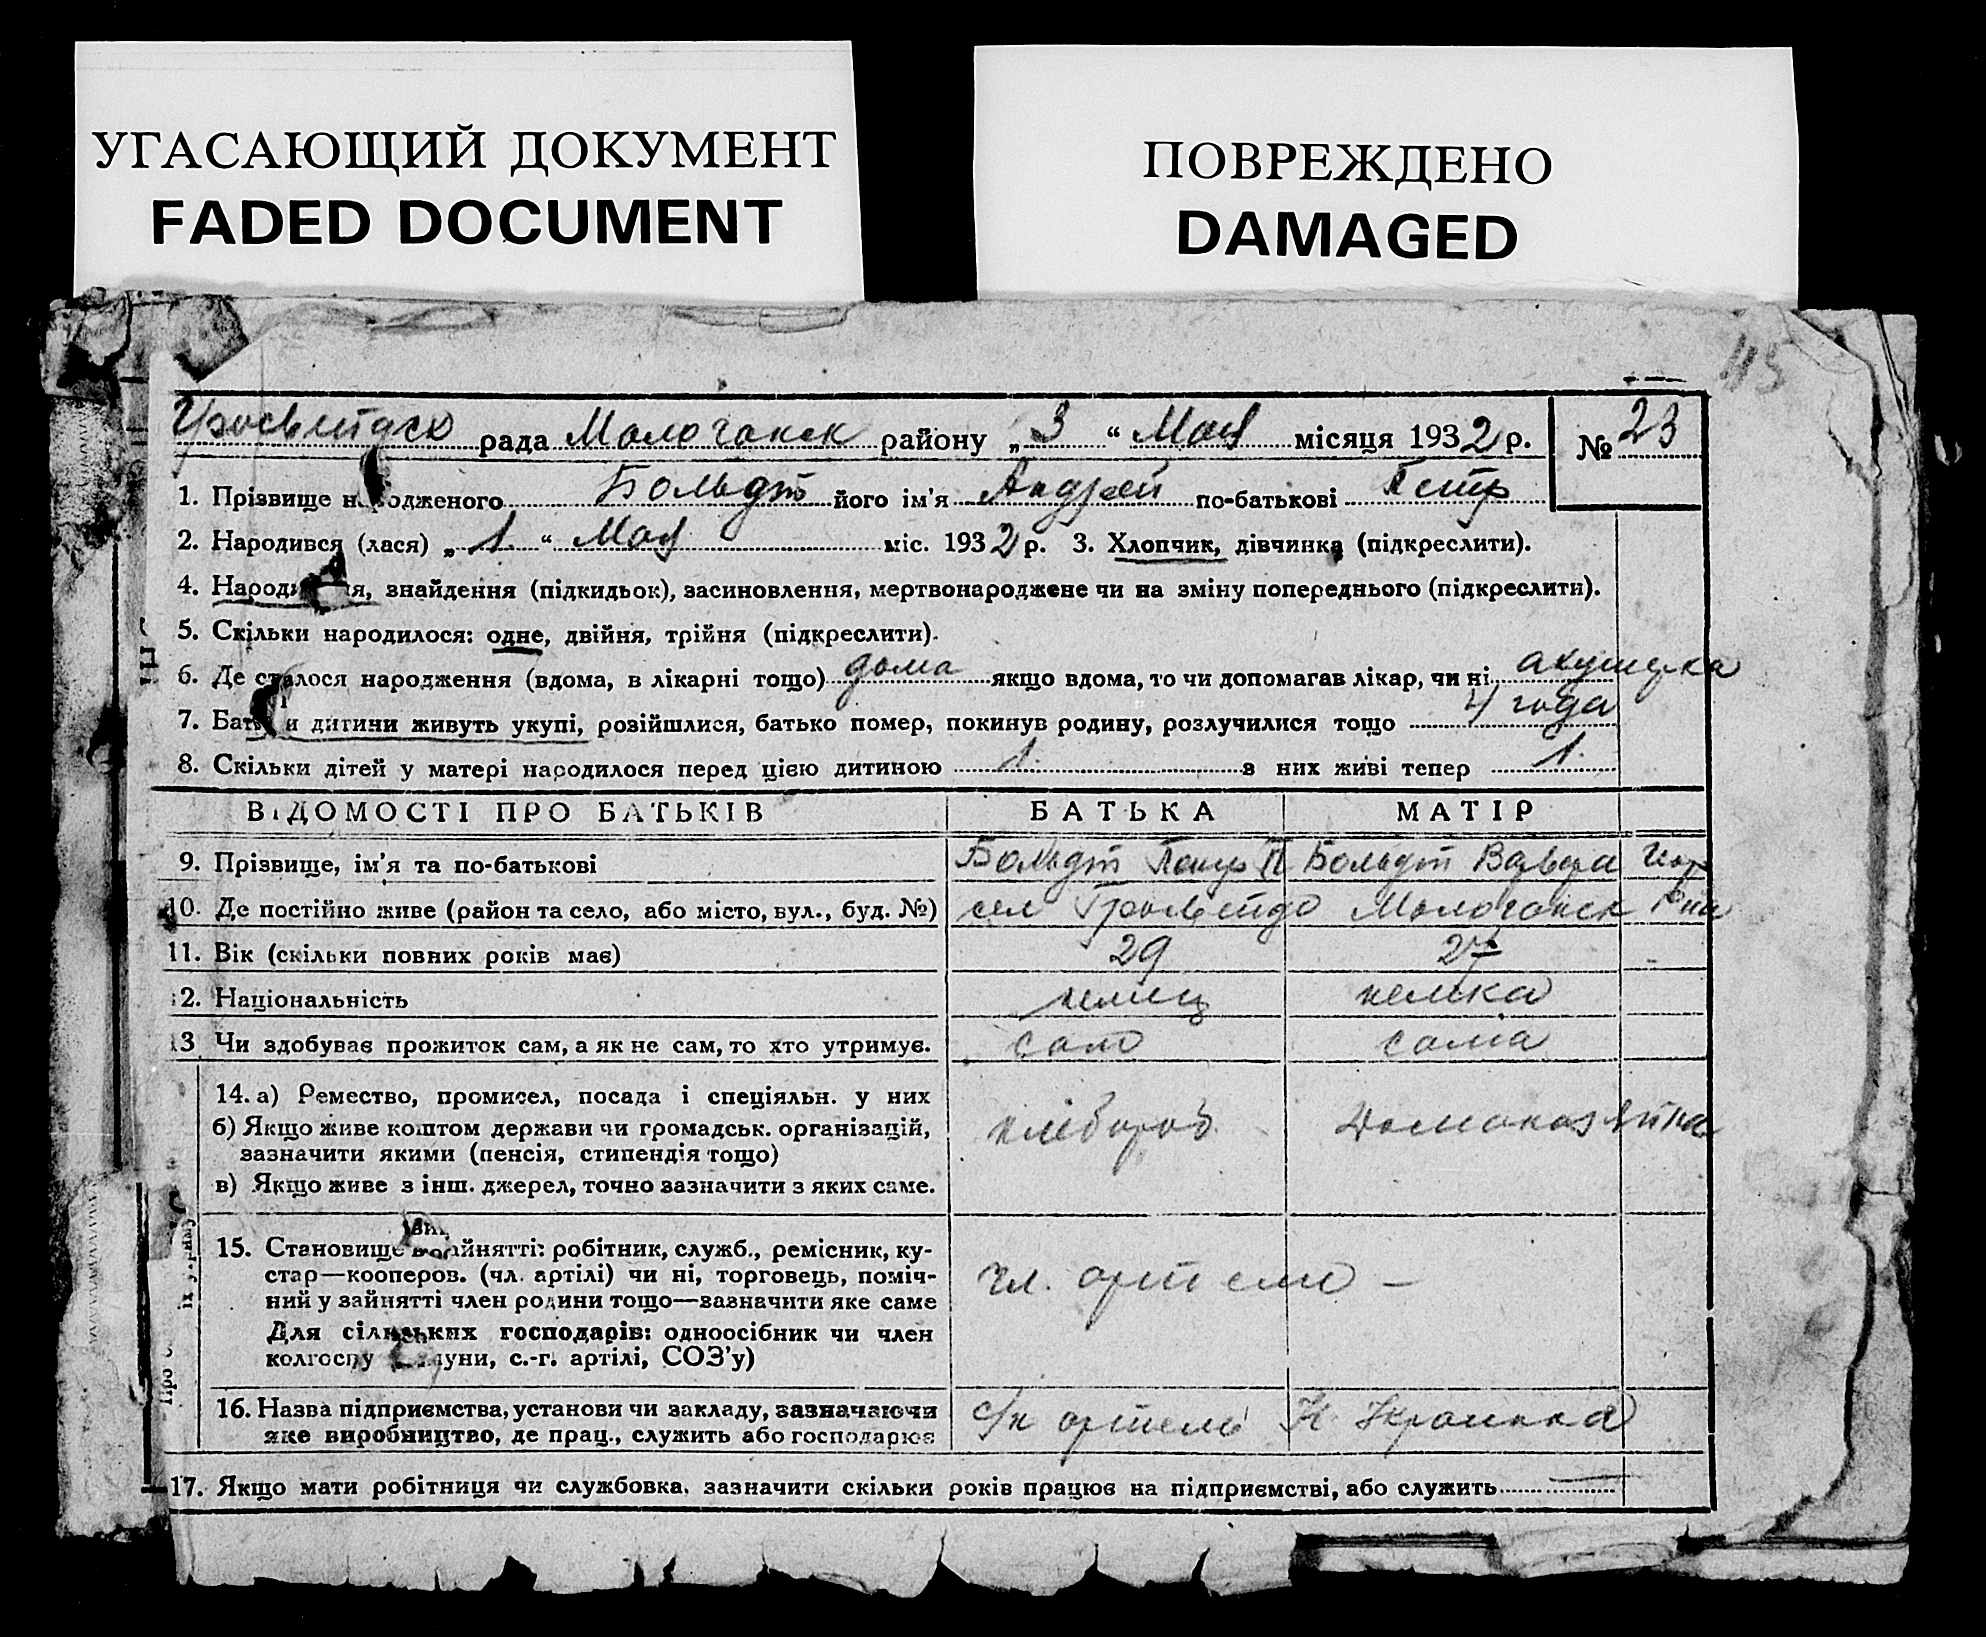 УГАСАЮЩИЙ ДОКУМЕНТ
FADED DOCUMENT
ПОВРЕЖДЕНО
DAMAGED
45
рада Молочанск району „3“ Мая місяця 1932 р. № 23
1. Прізвище на одженого Больдт його ім'я Андрей по-батькові Петр
2. Народився (лася) „1.“ Мая міс. 1932 р. 3. Хлопчик, дівчинка (підкреслити).
4. Народж я, знайдення (підкидьок), засиновлення, мертвонароджене чи на зміну попереднього (підкреслити).
5. Скільки народилося: одне, двійня, трійня (підкреслити).
6. Де сталося народження (вдома, в лікарні тощо) дома якщо вдома, то чи допомагав лікар, чи ні акушерка
7. Бат и дитини живуть укупі, розійшлися, батько помер, покинув родину, розлучилися тощо 4 года
8. Скільки дітей у матері народилося перед цією дитиною 1. з них живі тепер 1.
ВІДОМОСТІ ПРО БАТЬКІВ БАТЬКА МАТІР
9. Прізвище, ім'я та по-батькові Больдт Петр П Больдт Варвара
10. Де постійно живе (район та село, або місто, вул., буд. №) сел Молочанск Рна
11. Вік (скільки повних років має) 29 27
12. Національність немец немка
13 Чи здобуває прожиток сам, а як не сам, то хто утримує. сам сама
14. а) Ремество, промисел, посада і спеціяльн. у них
б) Якщо живе коштом держави чи громадськ. організацій, хлебороб Домохозяйка
зазначити якими (пенсія, стипендія тощо)
в) Якщо живе з інш. джерел, точно зазначити з яких саме.
15. Становище в зайнятті: робітник, служб., ремісник, ку-
стар—кооперов. (чл. артілі) чи ні, торговець, поміч- чл. артели —
ний у зайнятті член родини тощо—зазначити яке саме
Для сільських господарів: одноосібник чи член
колгоспу муни, с.-г. артілі, СОЗ'у)
16. Назва підприємства, установи чи закладу, зазначаючи с/х артель Н. Украинка
яке виробництво, де прац., служить або господарює
17. Якщо мати робітниця чи службовка, зазначити скільки років працює на підприємстві, або служить —